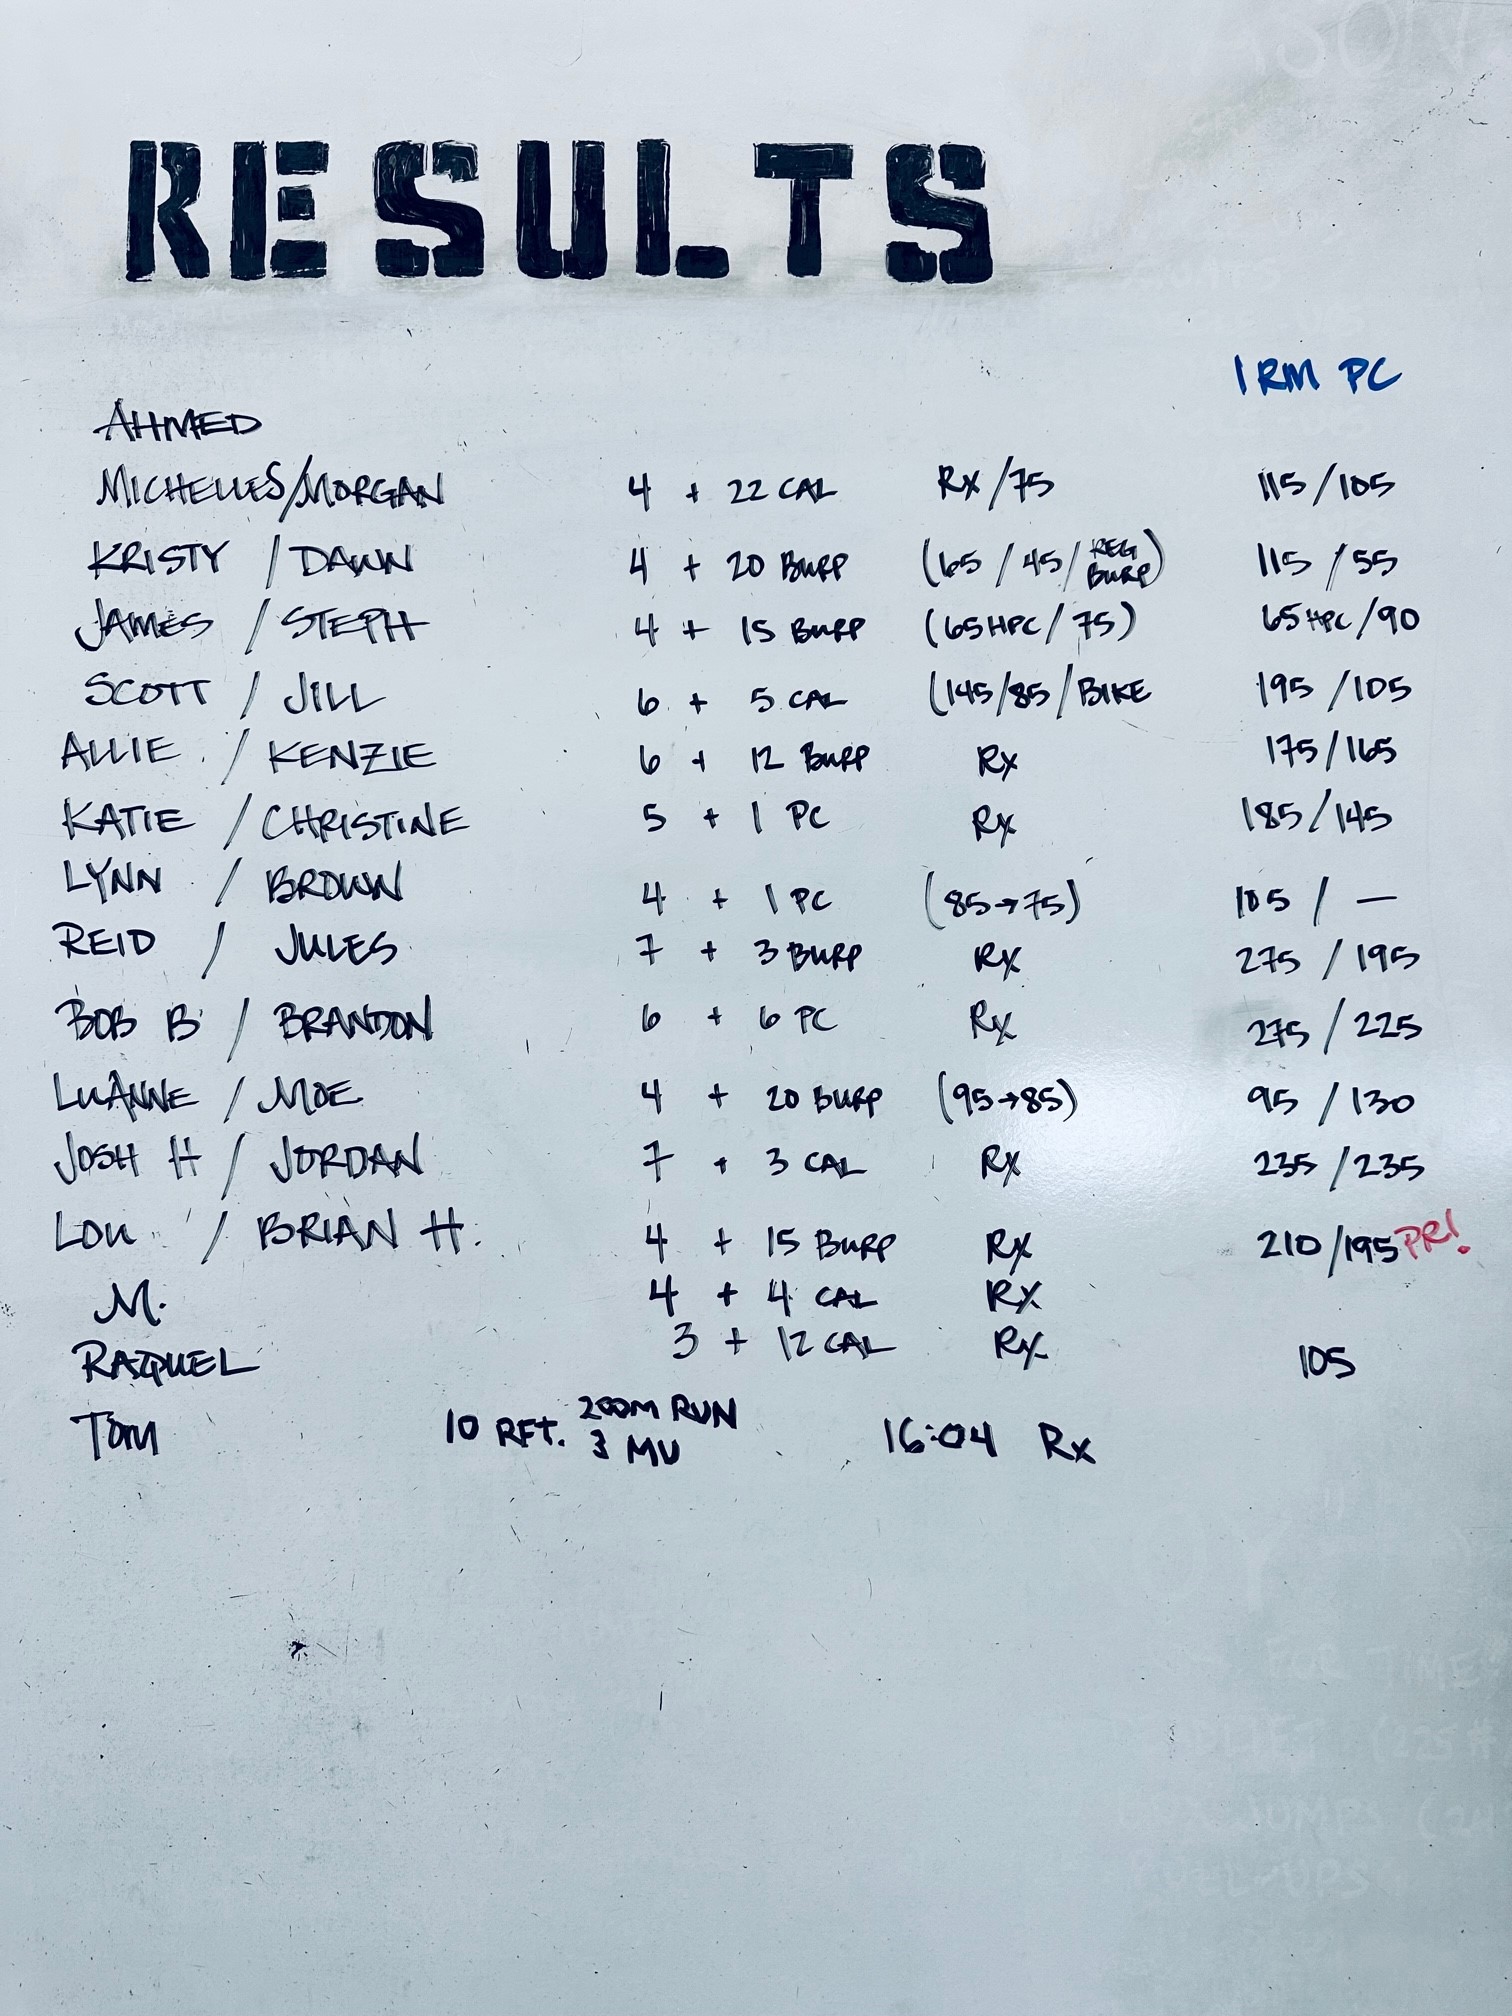 RESULTS
1 RM PC
AHMED
MICHELLES/MORGAN 4 + 22 CAL Rx/75 115/105
KRISTY / DAWN 4 + 20 BURP (65 / 45 / REG BURP) 115 / 55
JAMES / STEPH 4 + 15 BURP (65HPC / 75) 65HPC/90
SCOTT / JILL 6 + 5 CAL (145/85/BIKE 195/105
ALLIE / KENZIE 6 + 12 BURP Rx 175/165
KATIE / CHRISTINE 5 + 1 PC Rx 185/145
LYNN / BROWN 4 + 1 PC (85→75) 105 / —
REID / JULES 7 + 3 BURP Rx 275 / 195
BOB B / BRANDON 6 + 6 PC Rx 275 / 225
LUANNE / MOE 4 + 20 BURP (95→85) 95 / 130
JOSH H / JORDAN 7 + 3 CAL Rx 235/235
LOU / BRIAN H. 4 + 15 BURP Rx 210/195 PR!
M. 4 + 4 CAL Rx
RAQUEL 3 + 12 CAL Rx 105
TOM 10 RFT. 200M RUN 3 MU 16:04 Rx
FOR TIME"
(225#
JUMPS (24
PULL-UPS